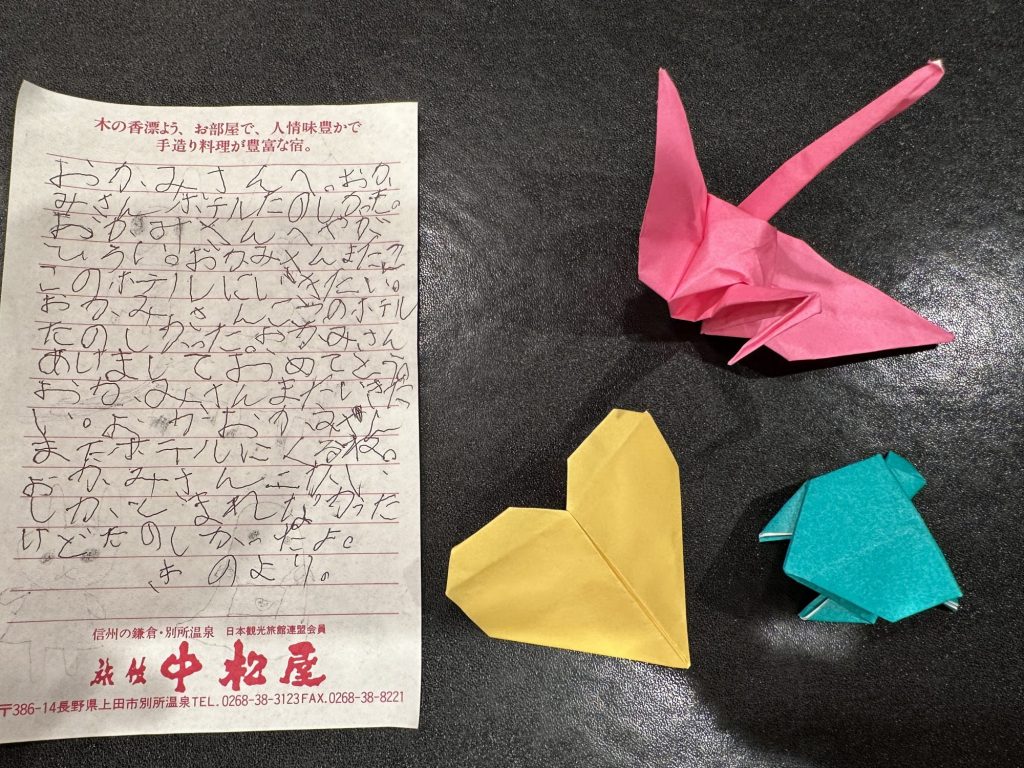 木の香漂よう、お部屋で、人情味豊かで
手造り料理が豊富な宿。
おかみさんへ。おか
みさんホテルたのしかった。
おかみさんへやが
ひろい。おかみさんまたこ
このホテルにいきたい。
おかみさんここのホテル
たのしかった。おかみさん
あじまじておめてとう。
おかみさんまたいきた
い。よ おかみさん
またホテルにくる
おかみさん
しか、とまれなかった
けどたのしかったよ。
きのより。
信州の鎌倉・別所温泉 日本観光旅館連盟会員
旅館 中松屋
〒386-14長野県上田市別所温泉TEL.0268-38-3123FAX.0268-38-8221